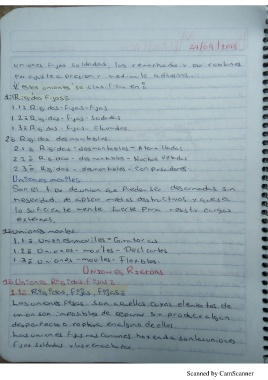 uniones fijas soldadas, los remachados y por roblones
en ajuste a presion y mediante adhesivos.
Y estas uniones se clasifican en:
1: Rigidas Fijas:
1.1: Rigidas-fijas-fijas
1.2: Rigidas-fijas-Soldadas
1.3: Rigidas-fijas-
2: Rigidas desmontables.
2.1: Rigidas-desmontables-Atornilladas
2.2: Rigidas-desmontables-
2.3: Rigidas-desmontables-con pasadores
Uniones moviles
Son el tipo de union que puede ser desarmadas sin
necesidad de aplicar medios destructivos y que es
lo suficiente mente fuerte para resistir cargas
externas.
1: Uniones moviles
1.1: Uniones moviles-Giratorias
1.2: Uniones-moviles-Deslizantes
1.3: Uniones-moviles-Flexibles.
Uniones Rigidas
1: Uniones Rigidas fijas:
1.1: Rigidas, Fijas, Fijas:
Las uniones fijas son aquellas cuyos elementos de
union son imposibles de separar sin producir algun
desperfecto o rotura en alguno de ellos.
Las uniones fijas mas comunes
fijas soldadas
Scanned by CamScanner